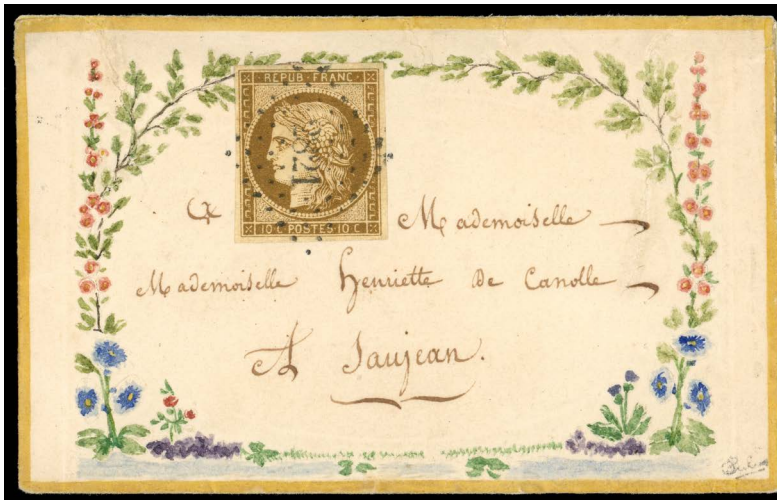 REPUB·FRANC·
10·C·POSTES·10·C
A Mademoiselle
Mademoiselle Henriette De Canolle
A Saujean.